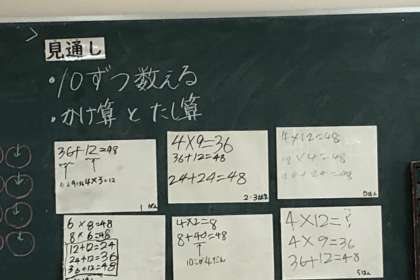 見通し
・10ずつ数える
・かけ算とたし算
36+12=48
4×3=12
4×9=36
36+12=48
24+24=48
4×12=48
12×4=48
24+24=48
6×8=48
8×6=48
12+12=24
24+12=36
36+12=48
4×2=8
8+40=48
10が4こ
4×12=?
4×9=36
36+12=48